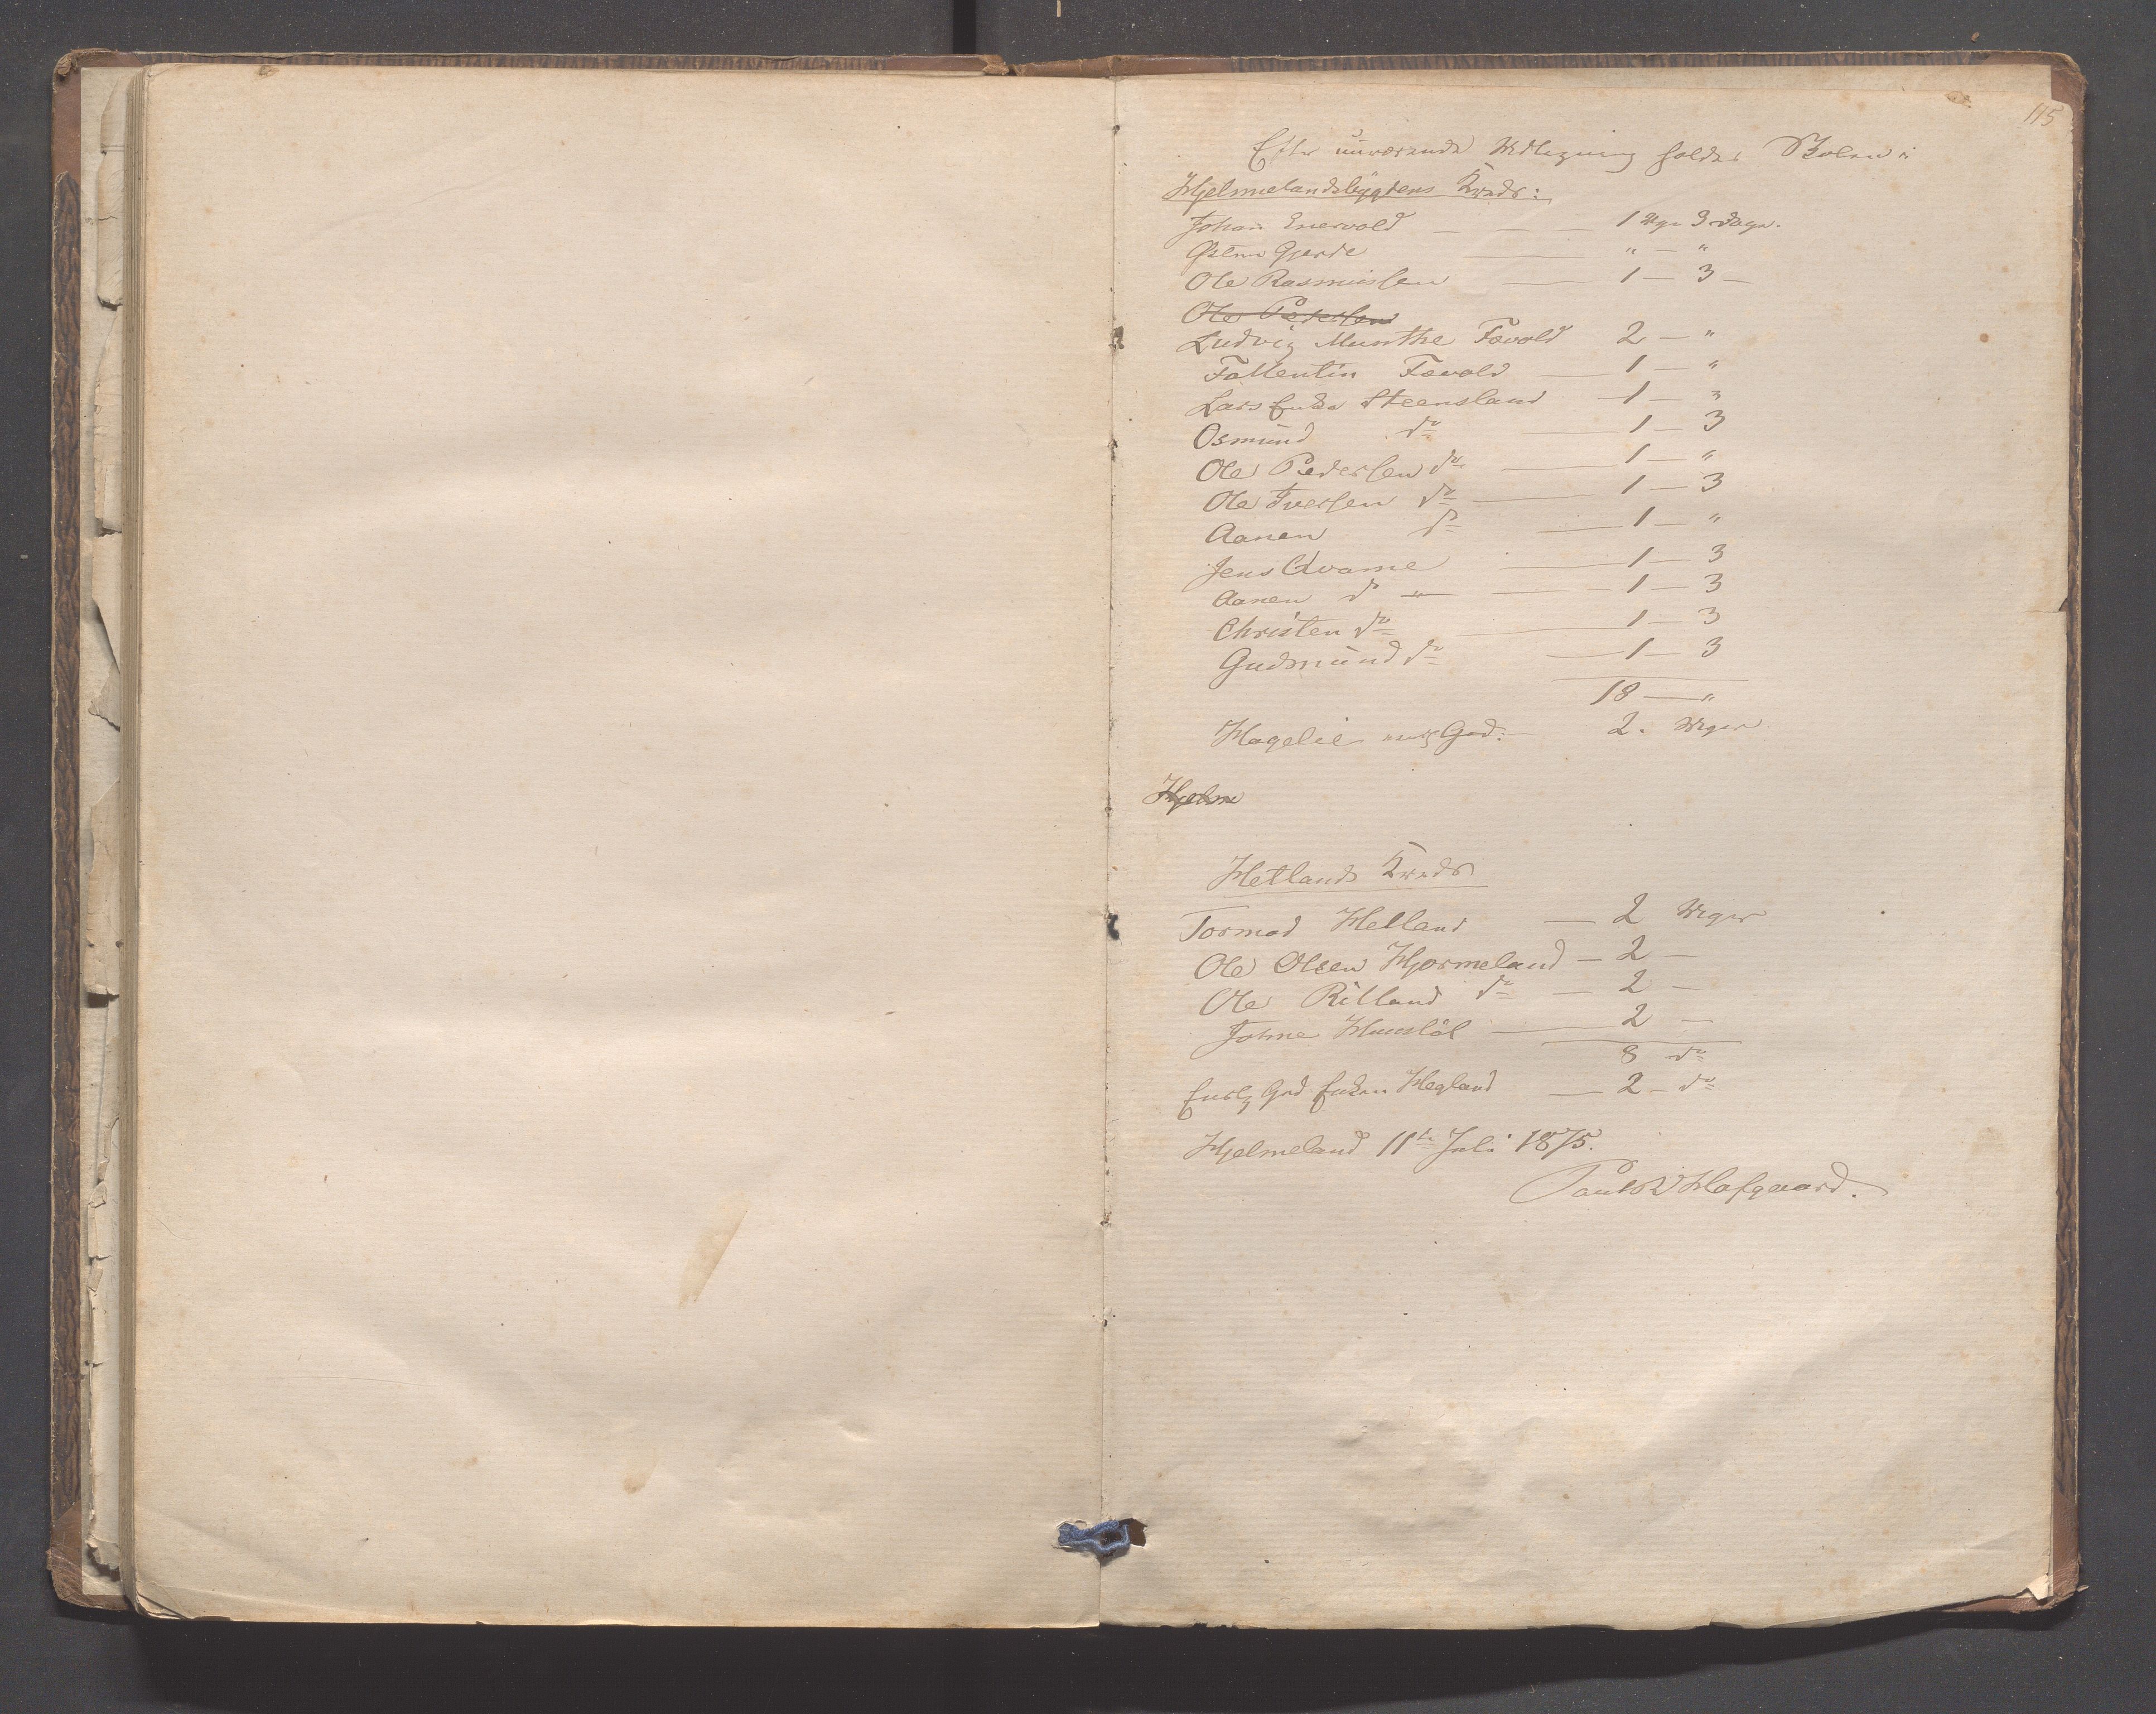 115
Efter nuværende Udligning holdes Skolen i
Hjelmelandsbygdens Kreds:
Johan Enevold — — — 1 Uge 3 Dage.
Østen Gjerde — " — "
Ole Rasmussen — 1 — 3 —
Ole Pedersen
Ludvig Munthe Fævold 2 — "
Fallentin Fævold — 1 — "
Lars Enke Steensland — 1 — "
Osmund do — 1 — 3
Ole Pedersen do — 1 — "
Ole Iversen do — 1 — 3
Aanen do — 1 — "
Jens Qvame — 1 — 3
Aanen do — " — 1 — 3
Christen do — 1 — 3
Gudmund do — 1 — 3
18 — "
Hagelie Gd: — 2. Uger
Hjelm
Hetlands Kreds
Tormod Helland — 2 Uger
Ole Olsen Hjormeland — 2 —
Ole Rilland do — 2 —
Johne — 2 —
8 do
Gd Enken Hegland — 2 — do
Hjelmeland 11te Juli 1875.
Paul Hofgaard.